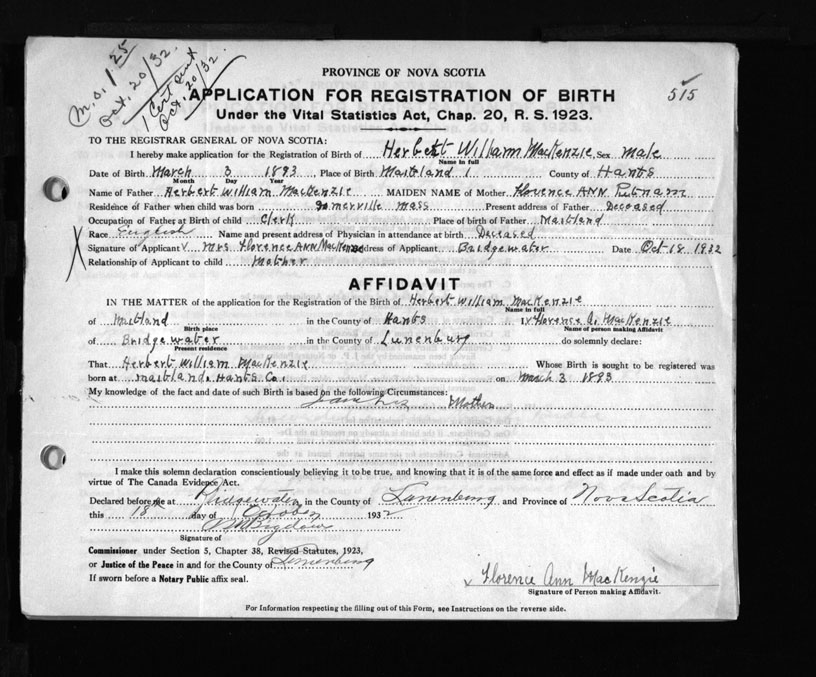 M.O. 1.25
Oct. 20/32.
1 Cert sent
Oct. 20/32.
515
PROVINCE OF NOVA SCOTIA
APPLICATION FOR REGISTRATION OF BIRTH
Under the Vital Statistics Act, Chap. 20, R. S. 1923.
TO THE REGISTRAR GENERAL OF NOVA SCOTIA:
I hereby make application for the Registration of Birth of Herbert William MacKenzie Sex male
Name in full
Date of Birth March 3 1893 Place of Birth Maitland 1 County of Hants
Month Day Year
Name of Father Herbert William MacKenzie MAIDEN NAME of Mother Florence Ann Putnam
Residence of Father when child was born Somerville Mass Present address of Father Deceased
Occupation of Father at Birth of child Clerk Place of birth of Father Maitland
Race English Name and present address of Physician in attendance at birth Deceased
Signature of Applicant Mrs Florence Ann MacKenzie Address of Applicant Bridgewater Date Oct 18 1932
Relationship of Applicant to child Mother
AFFIDAVIT
IN THE MATTER of the application for the Registration of the Birth of Herbert William MacKenzie
Name in full
of Maitland in the County of Hants I, Florence A. MacKenzie
Birth place Name of person making Affidavit
of Bridgewater in the County of Lunenburg do solemnly declare:
Present residence
That Herbert William MacKenzie Whose Birth is sought to be registered was
born at Maitland, Hants Co. on March 3 1893
My knowledge of the fact and date of such Birth is based on the following Circumstances:
I am his Mother
I make this solemn declaration conscientiously believing it to be true, and knowing that it is of the same force and effect as if made under oath and by
virtue of The Canada Evidence Act.
Declared before me at Bridgewater, in the County of Lunenburg and Province of Nova Scotia
this 18th day of October 1932
Signature of
Commissioner under Section 5, Chapter 38, Revised Statutes, 1923,
or Justice of the Peace in and for the County of Lunenburg
If sworn before a Notary Public affix seal.
x Florence Ann MacKenzie
Signature of Person making Affidavit.
For Information respecting the filling out of this Form, see Instructions on the reverse side.